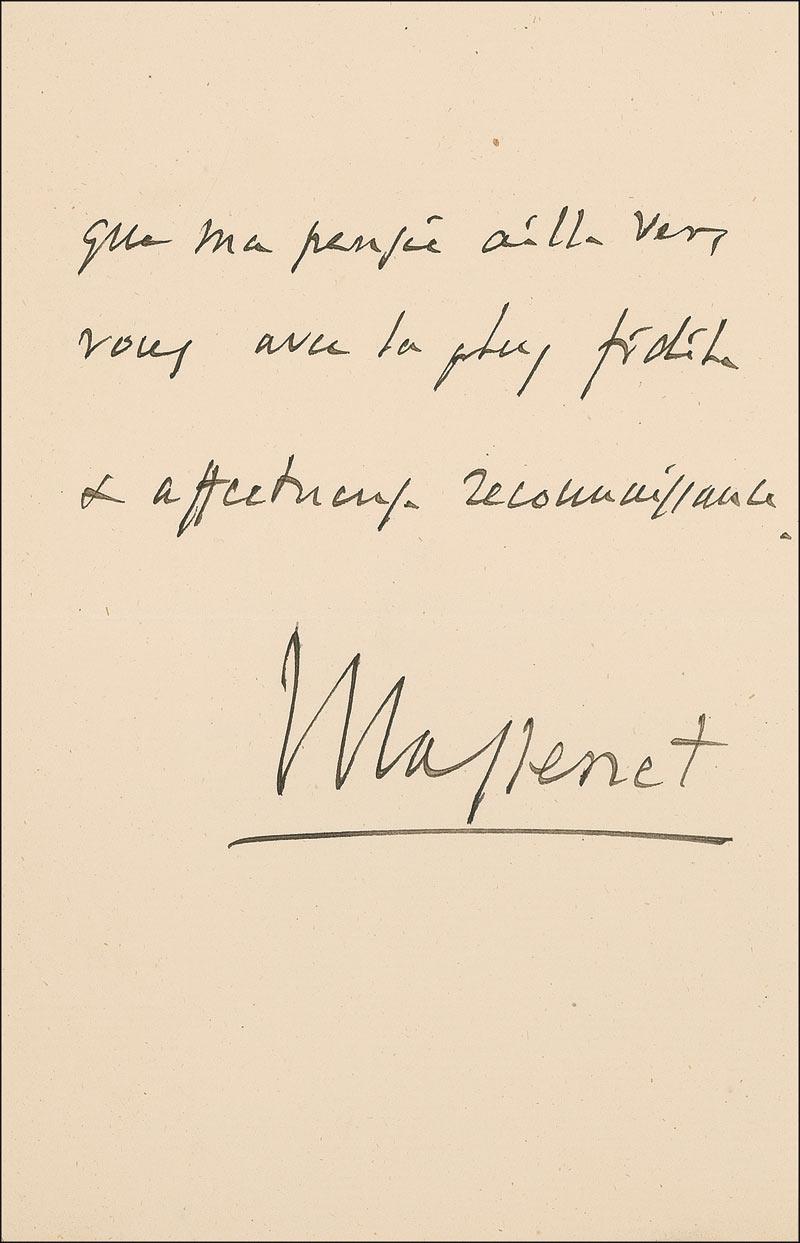 que ma pensée aille vers
vous avec la plus fidèle
& affectueuse reconnaissance.
Massenet